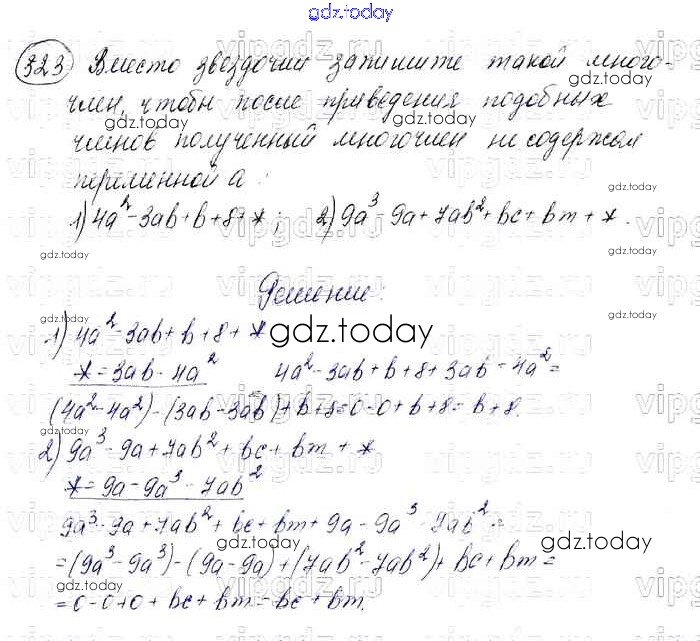 gdz.today
323 Вместо звездочки запишите такой много-
член, чтобы после приведения подобных
членов полученный многочлен не содержал
переменной a:
1) 4a² - 3ab + b + 8 + *; 2) 9a³ - 9a + 7ab² + bc + bm + *.
Решение:
1) 4a² - 3ab + b + 8 + *
gdz.today
* = 3ab - 4a² 4a² - 3ab + b + 8 + 3ab - 4a² =
(4a² - 4a²) - (3ab - 3ab) + b + 8 = 0 - 0 + b + 8 = b + 8.
2) 9a³ - 9a + 7ab² + bc + bm + *
* = 9a - 9a³ - 7ab²
9a³ - 9a + 7ab² + bc + bm + 9a - 9a³ - 7ab² =
= (9a³ - 9a³) - (9a - 9a) + (7ab² - 7ab²) + bc + bm =
= 0 - 0 + 0 + bc + bm = bc + bm.